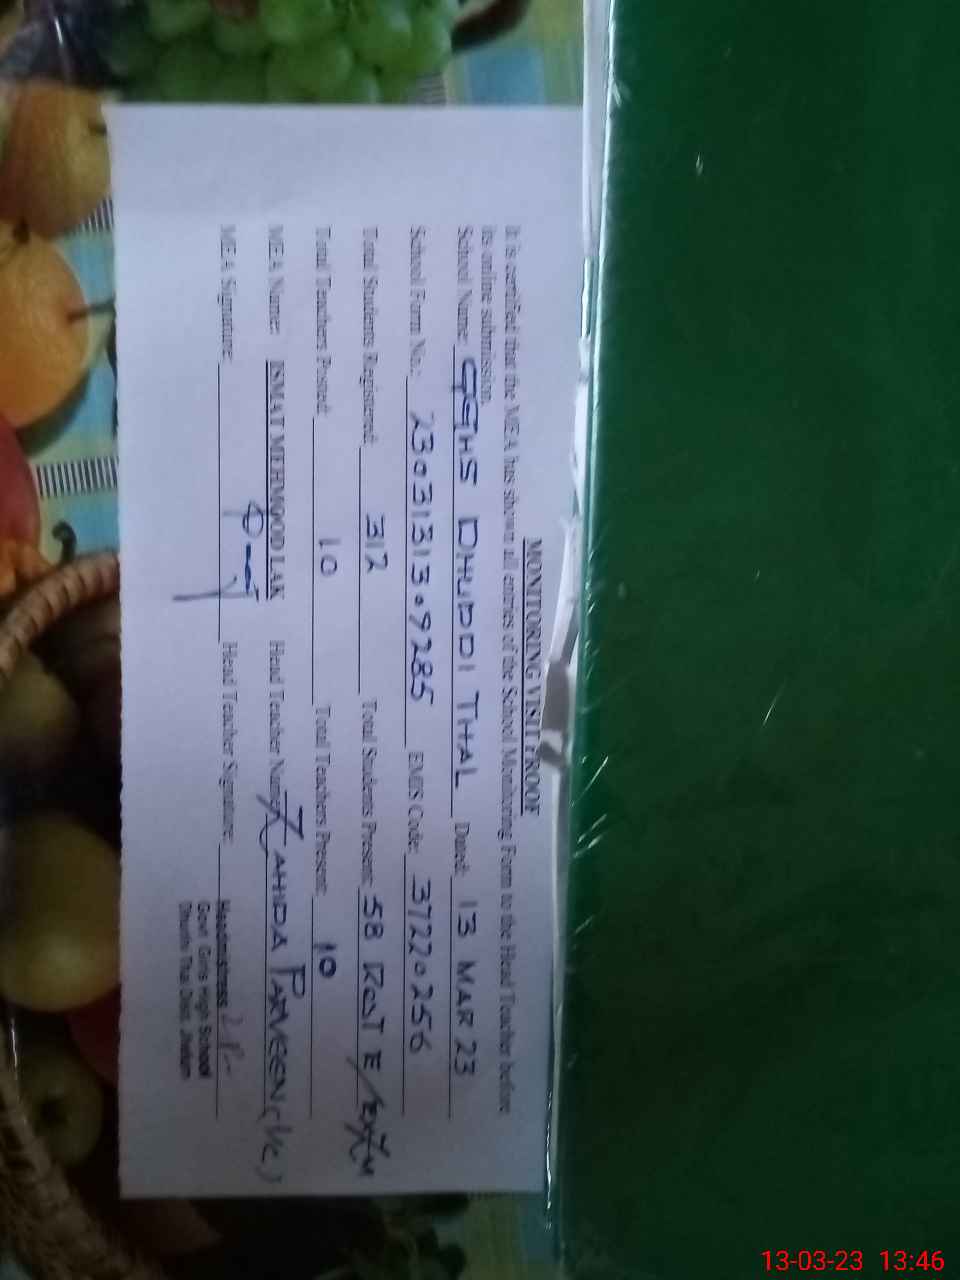 MONITORING VISIT PROOF
It is certified that the MEA has shown all entries of the School Monitoring Form to the Head Teacher before
its online submission.
School Name: GGHS DHUDDI THAL Dated: 13 MAR 23
School Form No.: 2303131309285 EMIS Code: 37220256
Total Students Registered: 312 Total Students Present: 58 Rest E/EXZM
Total Teachers Posted: 10 Total Teachers Present: 10
MEA Name: ISMAT MEHMOOD LAK Head Teacher Name: ZAHIDA PARVEEN
MEA Signature: Head Teacher Signature:
Headmistress
Govt. Girls High School
Dhudhi Thal Distt. Jhelum
13-03-23 13:46